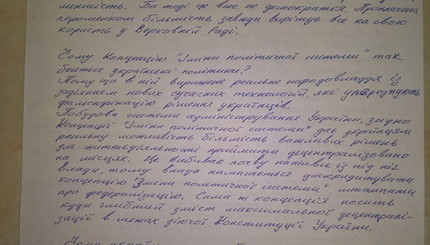 меншість. Бо тоді це вже не демократія. Проплачена
переможцем більшість завжди вирішує все на свою
користь у Верховній Раді.
Чому Концепцію "Зміни політичної системи" так
бояться українські політики?
Тому що в ній вирішене реальне народовладдя із
задіянням новых сучасних технологій які
фальсифікацію рішення українців.
Побудова системи адміністрування України, згодно
Концепції "Зміни політичної системи" дає українцям
реальну можливість більшість важливих рішень
для життєдіяльності приймати децентралізовано
на місцях. Це вибиває почву катеве із під ніг
влади, тому влада намагається дискредитувати
концепцію Зміни політичної системи" штампами
про федералізацію. Сама ж концепція носить
куди глибший зміст максимальної децентралі-
зації в межах діючої Конституції України.